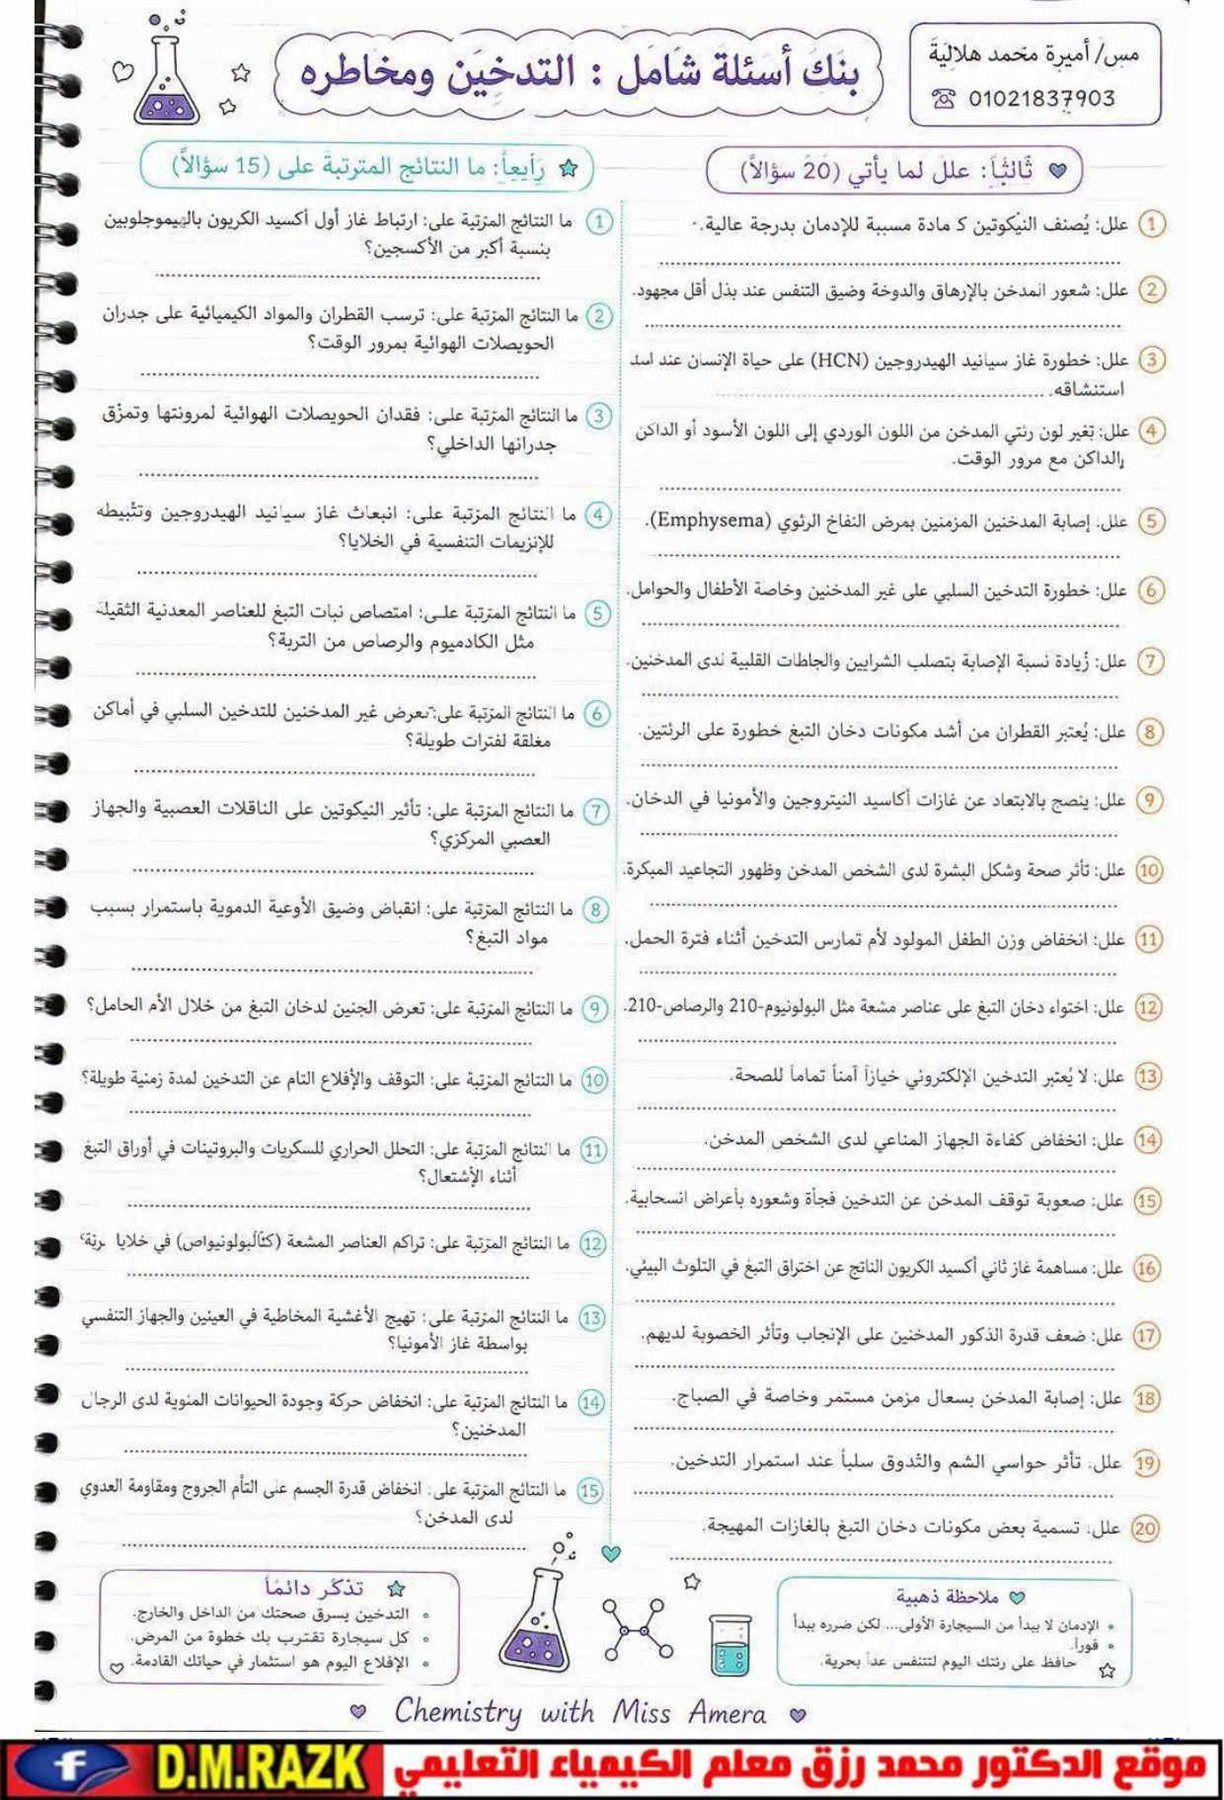 مس/ أميرة محمد هلالية
☎ 01021837903
بنك أسئلة شامل : التدخين ومخاطره
ثالثاً: علل لما يأتي (20 سؤالاً)
1 علل: يُصنف النيكوتين ك مادة مسببة للإدمان بدرجة عالية.
2 علل: شعور المدخن بالإرهاق والدوخة وضيق التنفس عند بذل أقل مجهود.
3 علل: خطورة غاز سيانيد الهيدروجين (HCN) على حياة الإنسان عند
استنشاقه.
4 علل: تغير لون رئتي المدخن من اللون الوردي إلى اللون الأسود أو الداكن
والداكن مع مرور الوقت.
5 علل: إصابة المدخنين المزمنين بمرض النفاخ الرئوي (Emphysema).
6 علل: خطورة التدخين السلبي على غير المدخنين وخاصة الأطفال والحوامل.
7 علل: زيادة نسبة الإصابة بتصلب الشرايين والجلطات القلبية لدى المدخنين.
8 علل: يُعتبر القطران من أشد مكونات دخان التبغ خطورة على الرئتين.
9 علل: ينصح بالابتعاد عن غازات أكاسيد النيتروجين والأمونيا في الدخان.
10 علل: تأثر صحة وشكل البشرة لدى الشخص المدخن وظهور التجاعيد المبكرة.
11 علل: انخفاض وزن الطفل المولود لأم تمارس التدخين أثناء فترة الحمل.
12 علل: احتواء دخان التبغ على عناصر مشعة مثل البولونيوم-210 والرصاص-210.
13 علل: لا يُعتبر التدخين الإلكتروني خيارًا آمناً تماماً للصحة.
14 علل: انخفاض كفاءة الجهاز المناعي لدى الشخص المدخن.
15 علل: صعوبة توقف المدخن عن التدخين فجأة وشعوره بأعراض انسحابية.
16 علل: مساهمة غاز ثاني أكسيد الكربون الناتج عن احتراق التبغ في التلوث البيئي.
17 علل: ضعف قدرة الذكور المدخنين على الإنجاب وتأثر الخصوبة لديهم.
18 علل: إصابة المدخن بسعال مزمن مستمر وخاصة في الصباح.
19 علل: تأثر حواسي الشم والتذوق سلباً عند استمرار التدخين.
20 علل: تسمية بعض مكونات دخان التبغ بالغازات المهيجة.
رابعاً: ما النتائج المترتبة على (15 سؤالاً)
1 ما النتائج المترتبة على: ارتباط غاز أول أكسيد الكربون بالهيموجلوبين
بنسبة أكبر من الأكسجين؟
2 ما النتائج المترتبة على: ترسب القطران والمواد الكيميائية على جدران
الحويصلات الهوائية بمرور الوقت؟
3 ما النتائج المترتبة على: فقدان الحويصلات الهوائية لمرونتها وتمزق
جدرانها الداخلي؟
4 ما النتائج المترتبة على: انبعاث غاز سيانيد الهيدروجين وتثبيطه
للإنزيمات التنفسية في الخلايا؟
5 ما النتائج المترتبة على: امتصاص نبات التبغ للعناصر المعدنية الثقيلة
مثل الكادميوم والرصاص من التربة؟
6 ما النتائج المترتبة على: تعرض غير المدخنين للتدخين السلبي في أماكن
مغلقة لفترات طويلة؟
7 ما النتائج المترتبة على: تأثير النيكوتين على الناقلات العصبية والجهاز
العصبي المركزي؟
8 ما النتائج المترتبة على: انقباض وضيق الأوعية الدموية باستمرار بسبب
مواد التبغ؟
9 ما النتائج المترتبة على: تعرض الجنين لدخان التبغ من خلال الأم الحامل؟
10 ما النتائج المترتبة على: التوقف والإقلاع التام عن التدخين لمدة زمنية طويلة؟
11 ما النتائج المترتبة على: التحلل الحراري للسكريات والبروتينات في أوراق التبغ
أثناء الإشتعال؟
12 ما النتائج المترتبة على: تراكم العناصر المشعة في خلايا
13 ما النتائج المترتبة على: تهيج الأغشية المخاطية في العينين والجهاز التنفسي
بواسطة غاز الأمونيا؟
14 ما النتائج المترتبة على: انخفاض حركة وجودة الحيوانات المنوية لدى الرجال
المدخنين؟
15 ما النتائج المترتبة على: انخفاض قدرة الجسم على التأم الجروح ومقاومة العدوي
لدى المدخن؟
ملاحظة ذهبية
الإدمان لا يبدأ من السيجارة الأولى... لكن ضرره يبدأ
فوراً.
حافظ على رئتك اليوم لتتنفس غداً بحرية.
تذكر دائماً
التدخين يسرق صحتك من الداخل والخارج.
كل سيجارة تقترب بك خطوة من المرض.
الإقلاع اليوم هو استثمار في حياتك القادمة.
Chemistry with Miss Amera
موقع الدكتور محمد رزق معلم الكيمياء التعليمي D.M.RAZK f